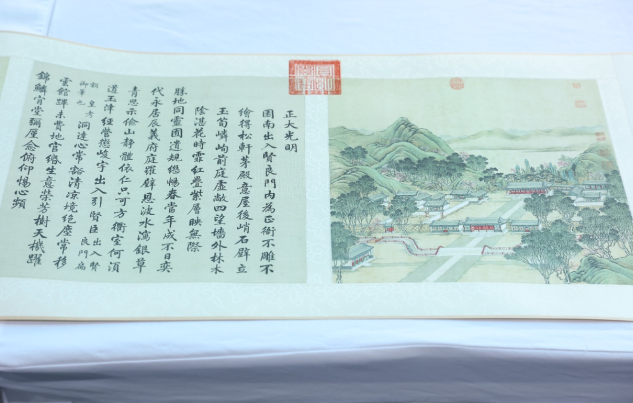 正大光明
園南出入賢良門內為正衙不雕不
繪得松軒茅殿意屋後峭石壁立
玉筍嶙峋前庭虛敞四望牆外林木
陰湛花時霏紅疊紫層映無際
勝地同靈囿遺規繼暢春當年成不日奕
代永居辰義府庭羅壁恩波水瀉銀草
青思示儉山靜體依仁只可方衢室何須
道玉津經營懲峻宇出入引賢臣出入賢良門扁
皇考御筆也洞達心常豁清涼境絕塵常移
雲館蹕未費地官緡生意榮芳樹天機躍
錦鱗肯堂彌廑念俯仰惕心頻